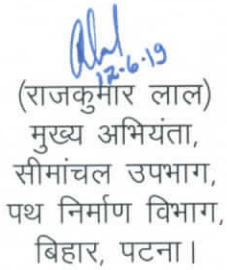 12-6-19
(राजकुमार लाल)
मुख्य अभियंता,
सीमांचल उपभाग,
पथ निर्माण विभाग,
बिहार, पटना।